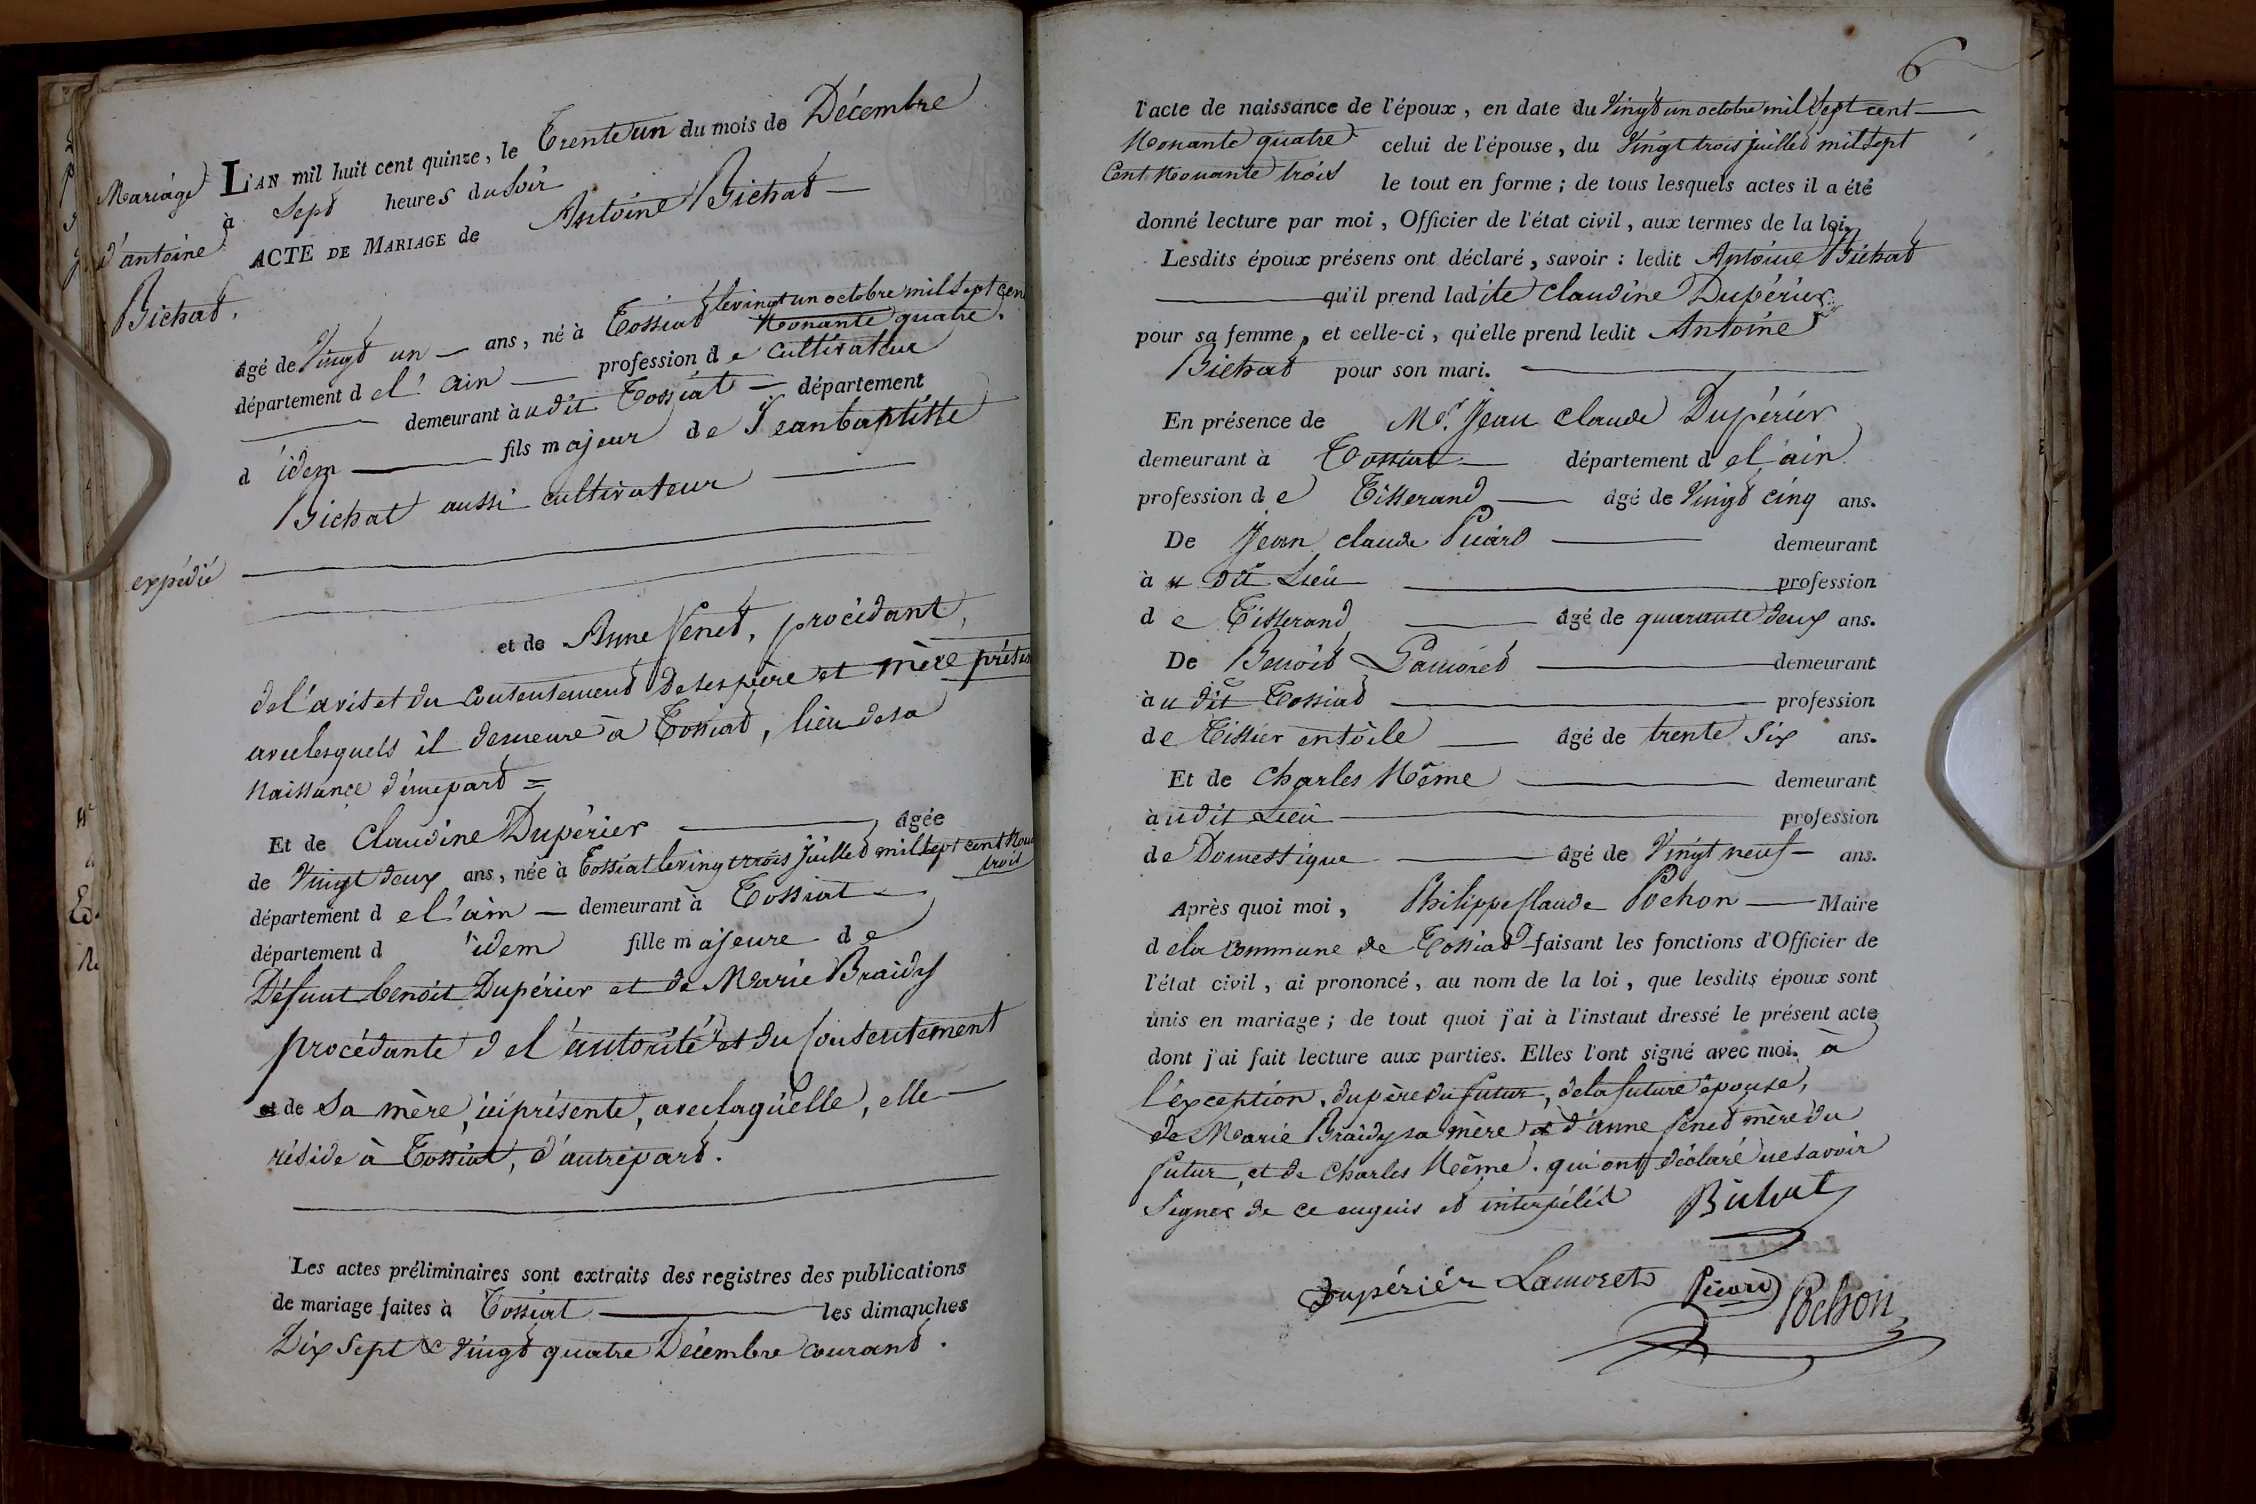 Mariage
d'antoine
Bichat.
expédié
L'AN mil huit cent quinze, le Trente un du mois de Décembre
à Sept heures du soir
ACTE DE MARIAGE de Antoine Bichat
âgé de Vingt un ans, né à Tossiat le vingt un octobre mil sept cent
Nonante quatre.
département de l'ain profession de cultivateur
demeurant audit Tossiat département
d'idem fils majeur de Jean baptiste
Bichat aussi cultivateur
et de Anne Venet, procédant,
de l'avis et du consentement de ses père et mère
avec lesquels il demeure à Tossiat, lieu de sa
Naissance d'une part =
Et de Claudine Dupérier âgée
de Vingt deux ans, née à Tossiat le vingt trois Juillet mil sept cent
trois
département de l'ain demeurant à Tossiat
département d idem fille majeure de
Défunt benoit Dupérier et de Marie Braidy
procédante de l'autorité et du Consentement
et de sa mère, ici présente, avec laquelle, elle
réside à Tossiat, d'autre part.
Les actes préliminaires sont extraits des registres des publications
de mariage faites à Tossiat les dimanches
Dix Sept & vingt quatre Décembre courant.
6
l'acte de naissance de l'époux, en date du Vingt un octobre mil Sept cent
Nonante quatre celui de l'épouse, du Vingt trois juillet mil Sept
Cent Nonante trois le tout en forme; de tous lesquels actes il a été
donné lecture par moi, Officier de l'état civil, aux termes de la loi.
Lesdits époux présens ont déclaré, savoir: ledit Antoine Bichat
qu'il prend ladite Claudine Dupérier
pour sa femme, et celle-ci, qu'elle prend ledit Antoine
Bichat pour son mari.
En présence de Mr. Jean Claude Dupérier
demeurant à Tossiat département de l'ain
profession de Tisserand âgé de Vingt cinq ans.
De Jean claude Picard demeurant
à u dit Lieu profession
de Tisserand âgé de quarante deux ans.
De Benoit Lamoret demeurant
à u dit Tossiat profession
de Tissier en toile âgé de trente Six ans.
Et de Charles Nême demeurant
audit Lieu profession
de Domestique âgé de Vingt neuf ans.
Après quoi moi, Philippe Claude Pochon Maire
de la Commune de Tossiat faisant les fonctions d'Officier de
l'état civil, ai prononcé, au nom de la loi, que lesdits époux sont
unis en mariage; de tout quoi j'ai à l'instaut dressé le présent acte
dont j'ai fait lecture aux parties. Elles l'ont signé avec moi. à
l'exception, du père du futur, de la future épouse,
de Marie Braidy sa mère et d'anne Venet mère du
futur, et de Charles Nême. qui ont déclaré ne savoir
Signer de ce enquis et interpélés Bichat
Dupériér Lamoret Picard Pochon